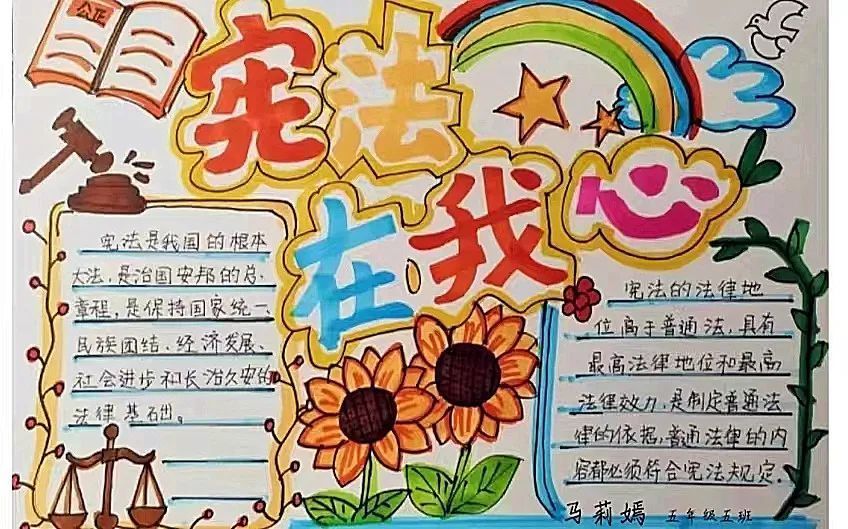 公正
宪法
在我心
宪法是我国的根本
大法，是治国安邦的总
章程，是保持国家统一、
民族团结、经济发展、
社会进步和长治久安的
法律基础。
宪法的法律地
位高于普通法，具有
最高法律地位和最高
法律效力，是制定普通法
律的依据，普通法律的内
容都必须符合宪法规定。
马莉嫣 五年级五班